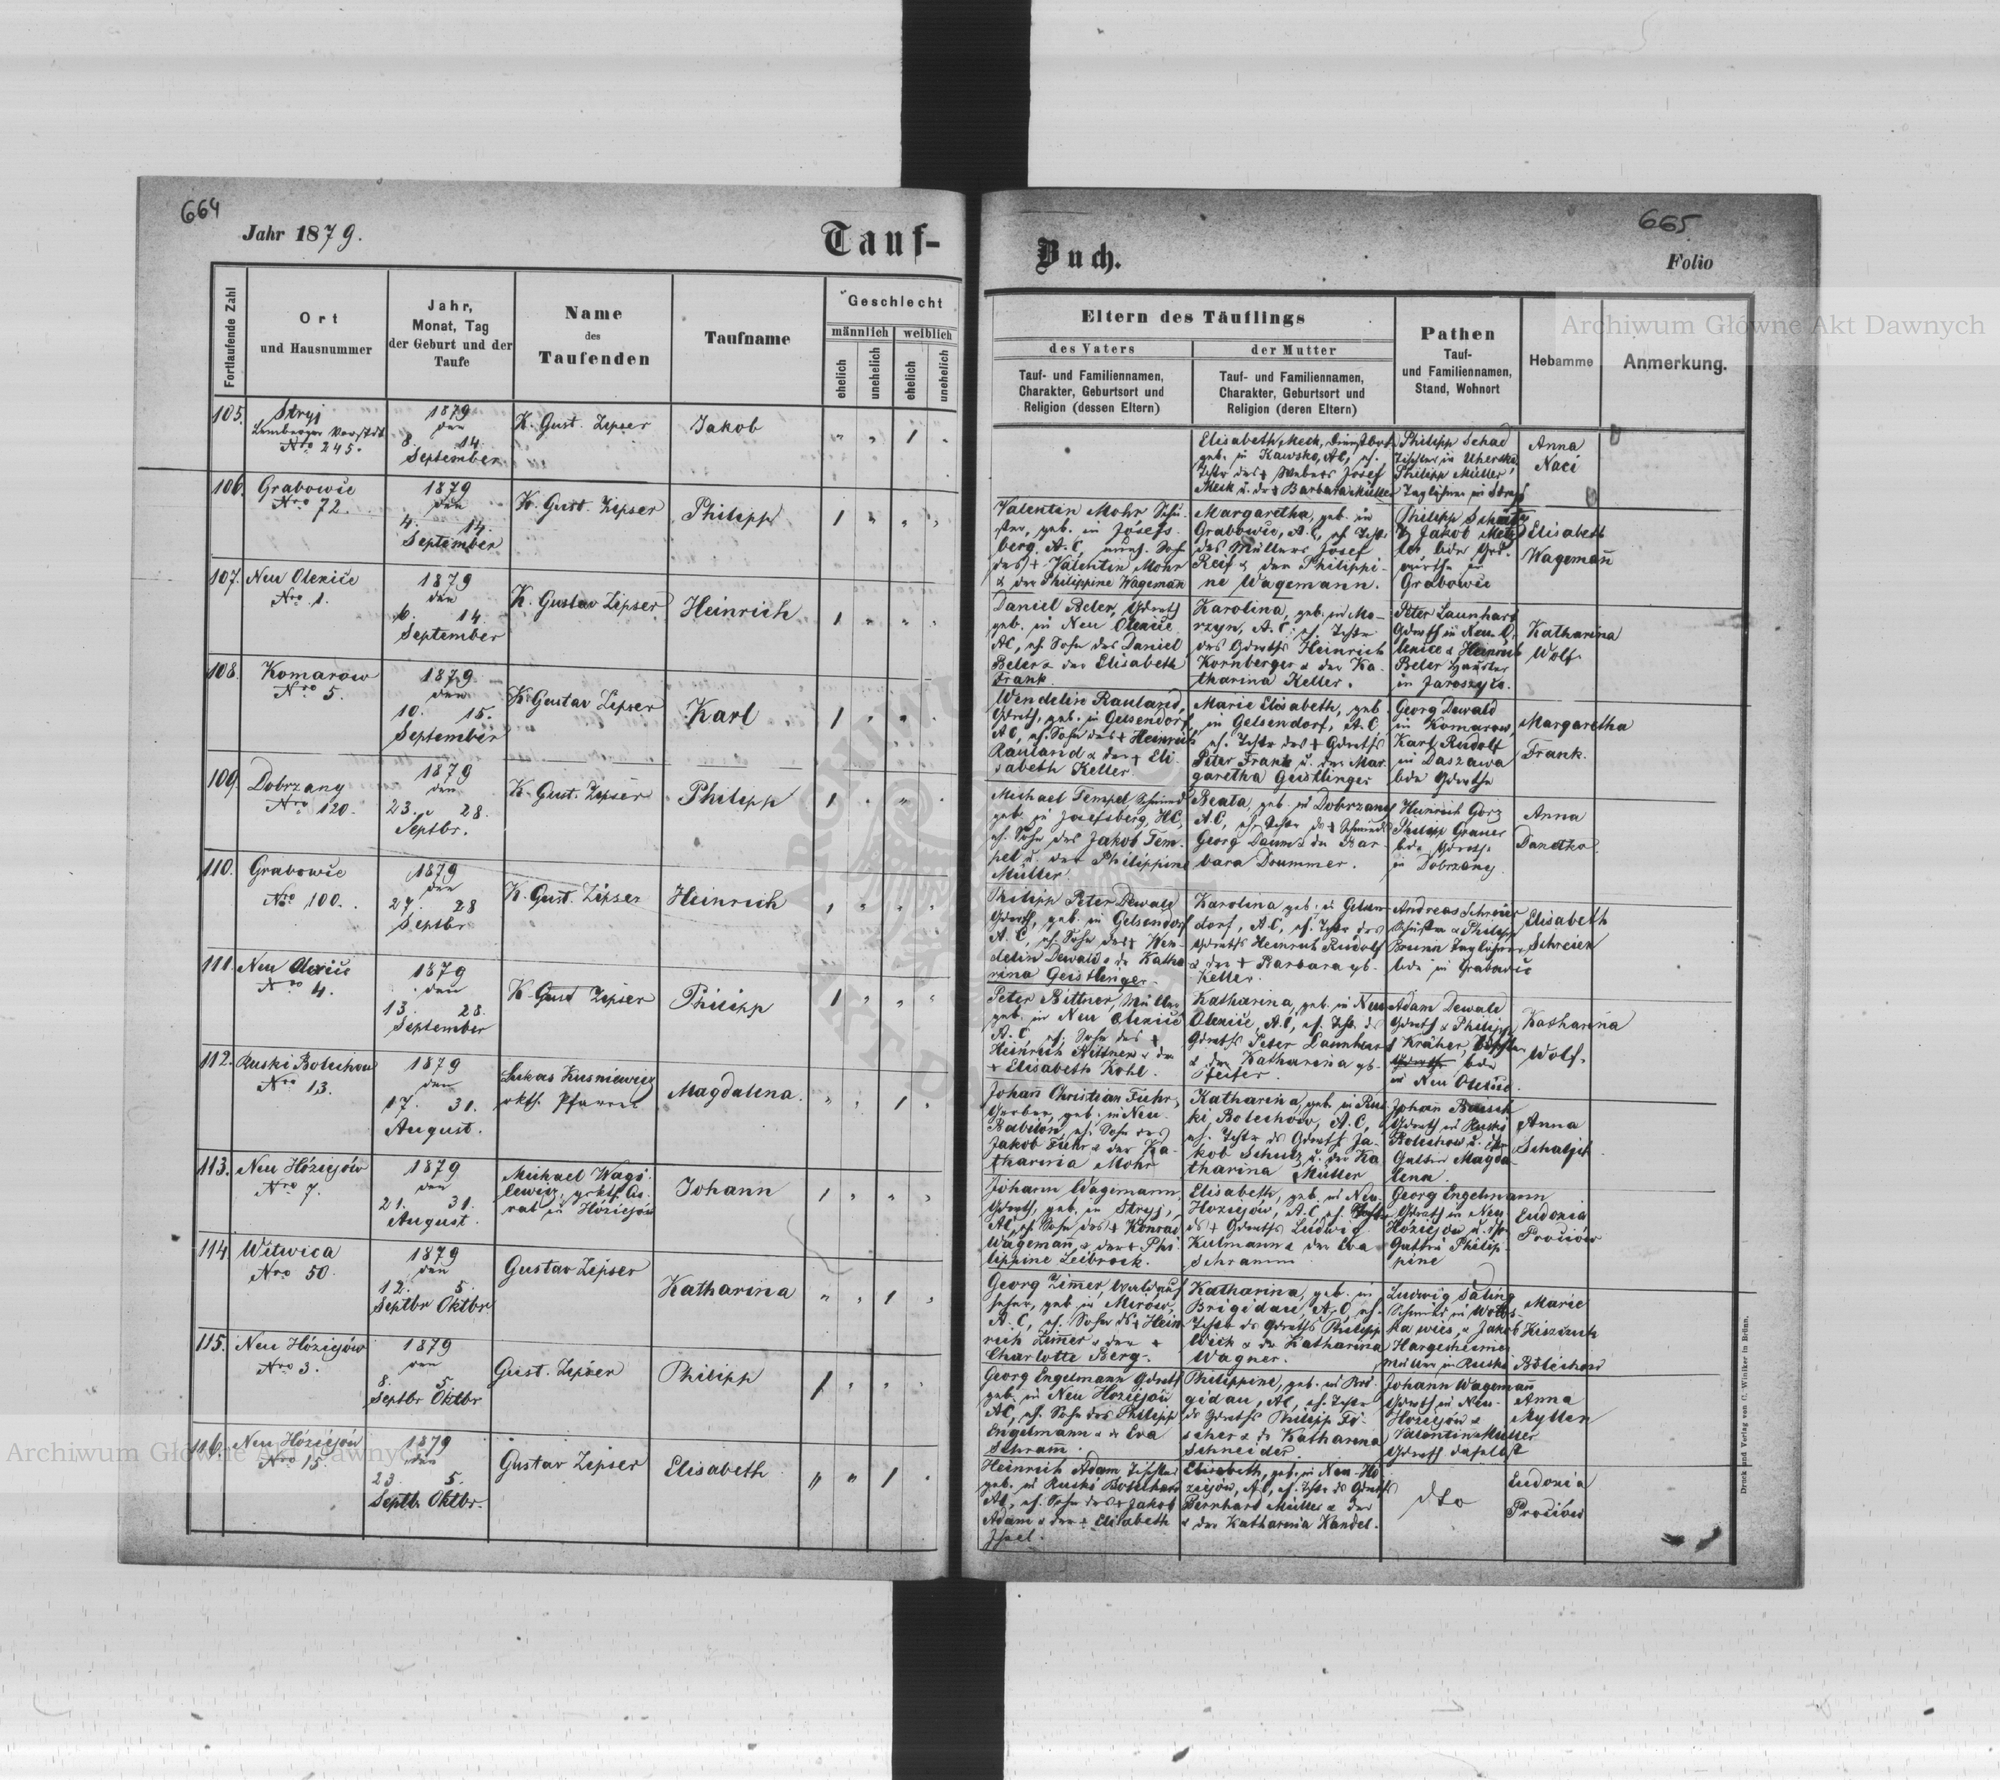 664
Jahr 1879.
Tauf-
Fortlaufende Zahl
Ort
und Hausnummer
Jahr,
Monat, Tag
der Geburt und der
Taufe
Name
des
Taufenden
Taufname
Geschlecht
männlich
weiblich
ehelich
unehelich
ehelich
unehelich
105.
Stryj
Lemberger Vorstdt
Nro 245.
1879
den
8. 14.
September
K. Gust. Zipser
Jakob
106.
Grabowic
Nro 72.
1879
den
4. 14.
September
K. Gust. Zipser
Philipp
107.
Neu Olexice
Nro 1.
1879
den
6. 14.
September
K. Gustav Zipser
Heinrich
108.
Komarow
Nro 5.
1879
den
10. 15.
September
K. Gustav Zipser
Karl
109.
Dobrzany
Nro 120.
1879
den
23. 28.
Septbr.
K. Gust. Zipser
Philipp
110.
Grabowic
Nro 100.
1879
den
27. 28
Septbr
K. Gust. Zipser
Heinrich
111.
Neu Olexice
Nro 4.
1879
den
13. 28.
September
K. Gust Zipser
Philipp
112.
Ruski Bolechow
Nro 13.
1879
den
17. 31.
August.
Lukas Kusniewicz
rkth. Pfarrer
Magdalena.
113.
Neu Hóziejów
Nro 7.
1879
den
21. 31.
August.
Michael Wagi-
lewicz, grkth. Cu-
rat in Hóziejów
Johann
114
Witwica
Nro 50.
1879
den
12. 5.
Septbr Oktbr
Gustav Zipser
Katharina
115.
Neu Hóziejów
Nro 3.
1879
den
8. 5.
Septbr Oktbr
Gust. Zipser
Philipp
116.
Neu Hóziejów
Nro 15.
1879
den
23. 5.
Septb. Oktbr.
Gustav Zipser
Elisabeth
665
Buch.
Folio
Eltern des Täuflings
des Vaters
der Mutter
Tauf- und Familiennamen,
Charakter, Geburtsort und
Religion (dessen Eltern)
Tauf- und Familiennamen,
Charakter, Geburtsort und
Religion (deren Eltern)
Pathen
Tauf-
und Familiennamen,
Stand, Wohnort
Hebamme
Anmerkung.
Elisabeth Meck, Dienstbote
geb. in Kawsko, AC, eh.
Tochter des + Webers Josef
Meck u. der + Barbara Müller
Philipp Schad
Tischler in Uhersko,
Philipp Müller,
Taglöhner in Stryj
Anna
Naci
Valentin Mohr Schu-
ster, geb. in Josefs-
berg, A.C,
des + Valentin Mohr
& der Philippine Wageman
Margaretha, geb. in
Grabowic, A.C, eh Tcht
des Müllers Josef
Reif & der Philippi-
ne Wagemann.
Grabowic
Elisabeth
Wagemañ
Daniel Beler, Gdwrth
geb. in Neu Olexice
AC, eh. Sohn des Daniel
Beler & der Elisabeth
Frank
Karolina, geb. in Mo-
rzyn, A.C; eh. Tchtr
des Gdwrths Heinrich
Kornberger & der Ka-
tharina Keller.
Peter Launhart
Gdwrth in Neu-O-
lexice & Heinrich
Beler
in Jaroszyce.
Katharina
Wolf
Wendelin Rauland,
Gdwrth, geb. in Gelsendorf,
AC, eh. Sohn des + Heinrich
Rauland & der + Eli-
sabeth Keller
Marie Elisabeth, geb.
in Gelsendorf, A.C
eh. Tchtr des + Gdwrths
Peter Frank u. der Mar-
garetha Geistlinger
Georg Dewald
in Komarow,
Karl Rudolf
in Daszawa
beide Gdwrthe
Margaretha
Frank.
Michael Tempel, Schmied
geb. in Josefsberg, HC,
eh. Sohn des Jakob Tem-
pel u. der Philippine
Müller
Beata, geb. in Dobrzany
A.C, eh. Tchtr ds + Schmieds
Georg Daum & der Bar-
bara Drummer.
Heinrich Gorz
Philipp Grauer
beide Gdwrthe
in Dobrzany
Anna
Danetko
Philipp Peter Dewald
Gdwrth, geb. in Gelsendorf
A.C, eh. Sohn des + Wen-
delin Dewald & der Katha-
rina Geistlinger.
Karolina geb. in Gelsen-
dorf, A.C, eh. Tchtr des
Gdwrths Heinrich Rudolf
& der + Barbara gb.
Keller.
Andreas Schreier
Schuster & Philipp
Brunn Taglöhner
beide in Grabowic
Elisabeth
Schreier
Peter Bittner, Müller
geb. in Neu Olexice
A.C, eh. Sohn des +
Heinrich Bittner & der
+ Elisabeth Kohl.
Katharina, geb. in Neu
Olexice, A.C, eh. Tchtr. ds
Gdwrths Peter Launhart
& der Katharina gb.
Pfeifer.
Adam Dewald
Gdwrth & Philipp
Kräher,
beide
in Neu Olexice.
Katharina
Wolf.
Johañ Christian Fuhr,
Gerber, geb. in Neu
Babilon, eh. Sohn des
Jakob Fuhr & der Ka-
tharina Mohr
Katharina, geb. in Rus-
ki Bolechow, A.C,
eh. Tchtr ds Gdwrths Ja-
kob Schutz u. der Ka-
tharina Müller
Johañ Baisch
Gdwrth in Ruski
Bolechow u. der
Gattin Magda-
lena.
Anna
Johann Wagemann,
Gdwrth, geb. in Stryj,
AC, eh. Sohn des + Konrad
Wagemañ & der + Phi-
lippine Leibrock.
Elisabeth, geb. in Neu-
Hoziejów, A.C eh. Tchtr
ds + Gdwrths Ludwig
Kulmann & der Eva
Schramm
Georg Engelmann
Gdwrth in Neu
Hóziejów u. der
Gattin Philip-
pine
Eudoxia
Prociów
Georg Zim̃er, Waldauf-
seher, geb. in Mirow,
A.C, eh. Sohn ds + Hein-
rich Zim̃er & der +
Charlotte Berg.
Katharina, geb. in
Brigidau, A.C, eh.
Tchtr ds Gdwrths Philipp
Wick & der Katharina
Wagner.
Ludwig Saling
Schmied in
& Jakob
Hargesheimer
Müller in Ruski Bolechow
Marie
Georg Engelmann Gdwrth
geb. in Neu Hoziejow
AC, eh. Sohn des Philipp
Engelmann & der Eva
Schram̃.
Philippine, geb. in Bri-
gidau, AC, eh. Tchtr
ds Gdwrths Philipp Fi-
scher & der Katharina
Schneider.
Johann Wagemañ
Gdwrth in Neu-
Hoziejów &
Valentin Müller
Gdwrth daselbst
Anna
Heinrich Adam Tischler
geb. in Ruski Bolechow
AC, eh. Sohn des + Jakob
Adam & der + Elisabeth
Elisabeth, geb. in Neu-Ho-
ziejów, AC, eh. Tchtr ds Gdwrths
Bernhard Müller & der
& der Katharina Kandel.
dto
Eudoxia
Prociów
Druck und Verlag von C. Winiker in Brünn.
Archiwum Główne Akt Dawnych
Archiwum Główne Akt Dawnych